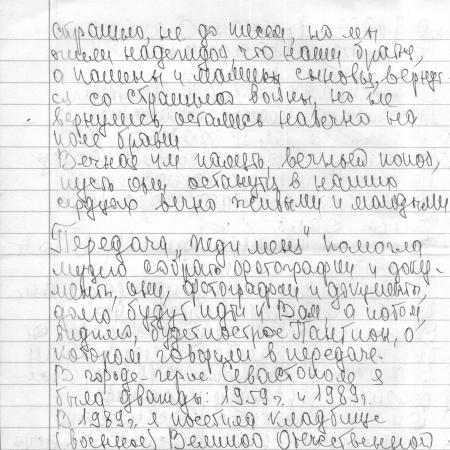 страшно, не до песен, но мы
жили надеждой, что наши братья,
а папины и мамины сыновья вернут-
ся со страшной войны, но не
вернулись, остались навечно на
поле брани
Вечная им память, вечный покой,
пусть они останутся в наших
сердцах вечно живыми и молодыми
Передача "Жди меня" помогла
музею собрать фотографии и доку-
менты, они, фотографии и документы
долго будут идти к Вам, а потом,
видимо, будет построен Пантион, о
котором говорили в передаче.
В городе-герое Севастополе я
была дважды: 1959г. и 1989г.
В 1989г. я посетила кладбище
(военное) Великой Отечественной